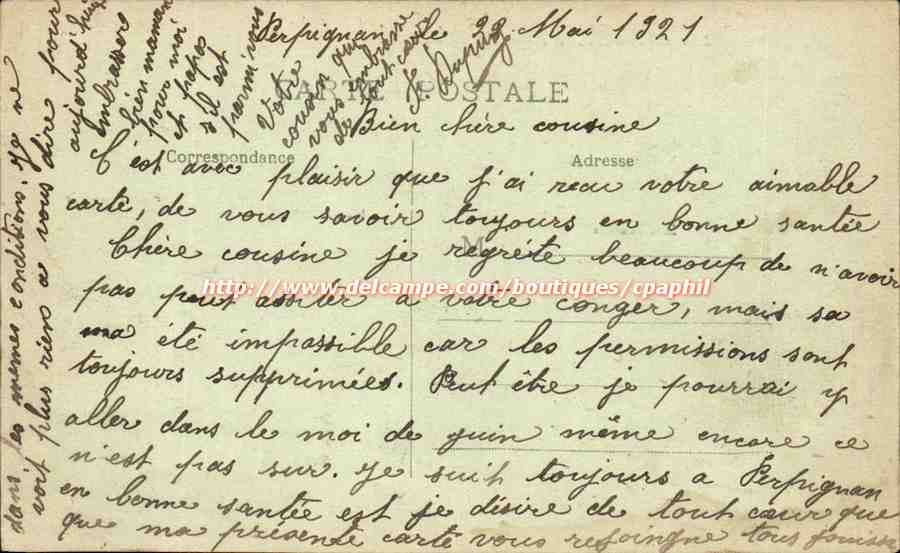 Perpignan le 28 Mai 1921
CARTE POSTALE
Bien chère cousine
Correspondance
Adresse
C'est avec plaisir que j'ai recu votre aimable
carte, de vous savoir toujours en bonne santée
M
Chère cousine je regréte beaucoup de n'avoir
pas peut assiter a votre conger, mais sa
http://www.delcampe.com/boutiques/cpaphil
ma été impossible car les permissions sont
toujours supprimées. Peut être je pourrai y
aller dans le moi de juin même encore ce
n'est pas sur. Je suit toujours a Perpignan
en bonne santée est je désire de tout cœur que
que ma présente carte vous rejoingne tous
dans les memes conditions. Je ne
voit plus rien a vous dire pour
aujourd'hui
embrasser
bien maman
pour moi
et papa
s'il est
parmi vous
Votre
cousin qui
vous embrasse
de tout cœur
J. Dupuy